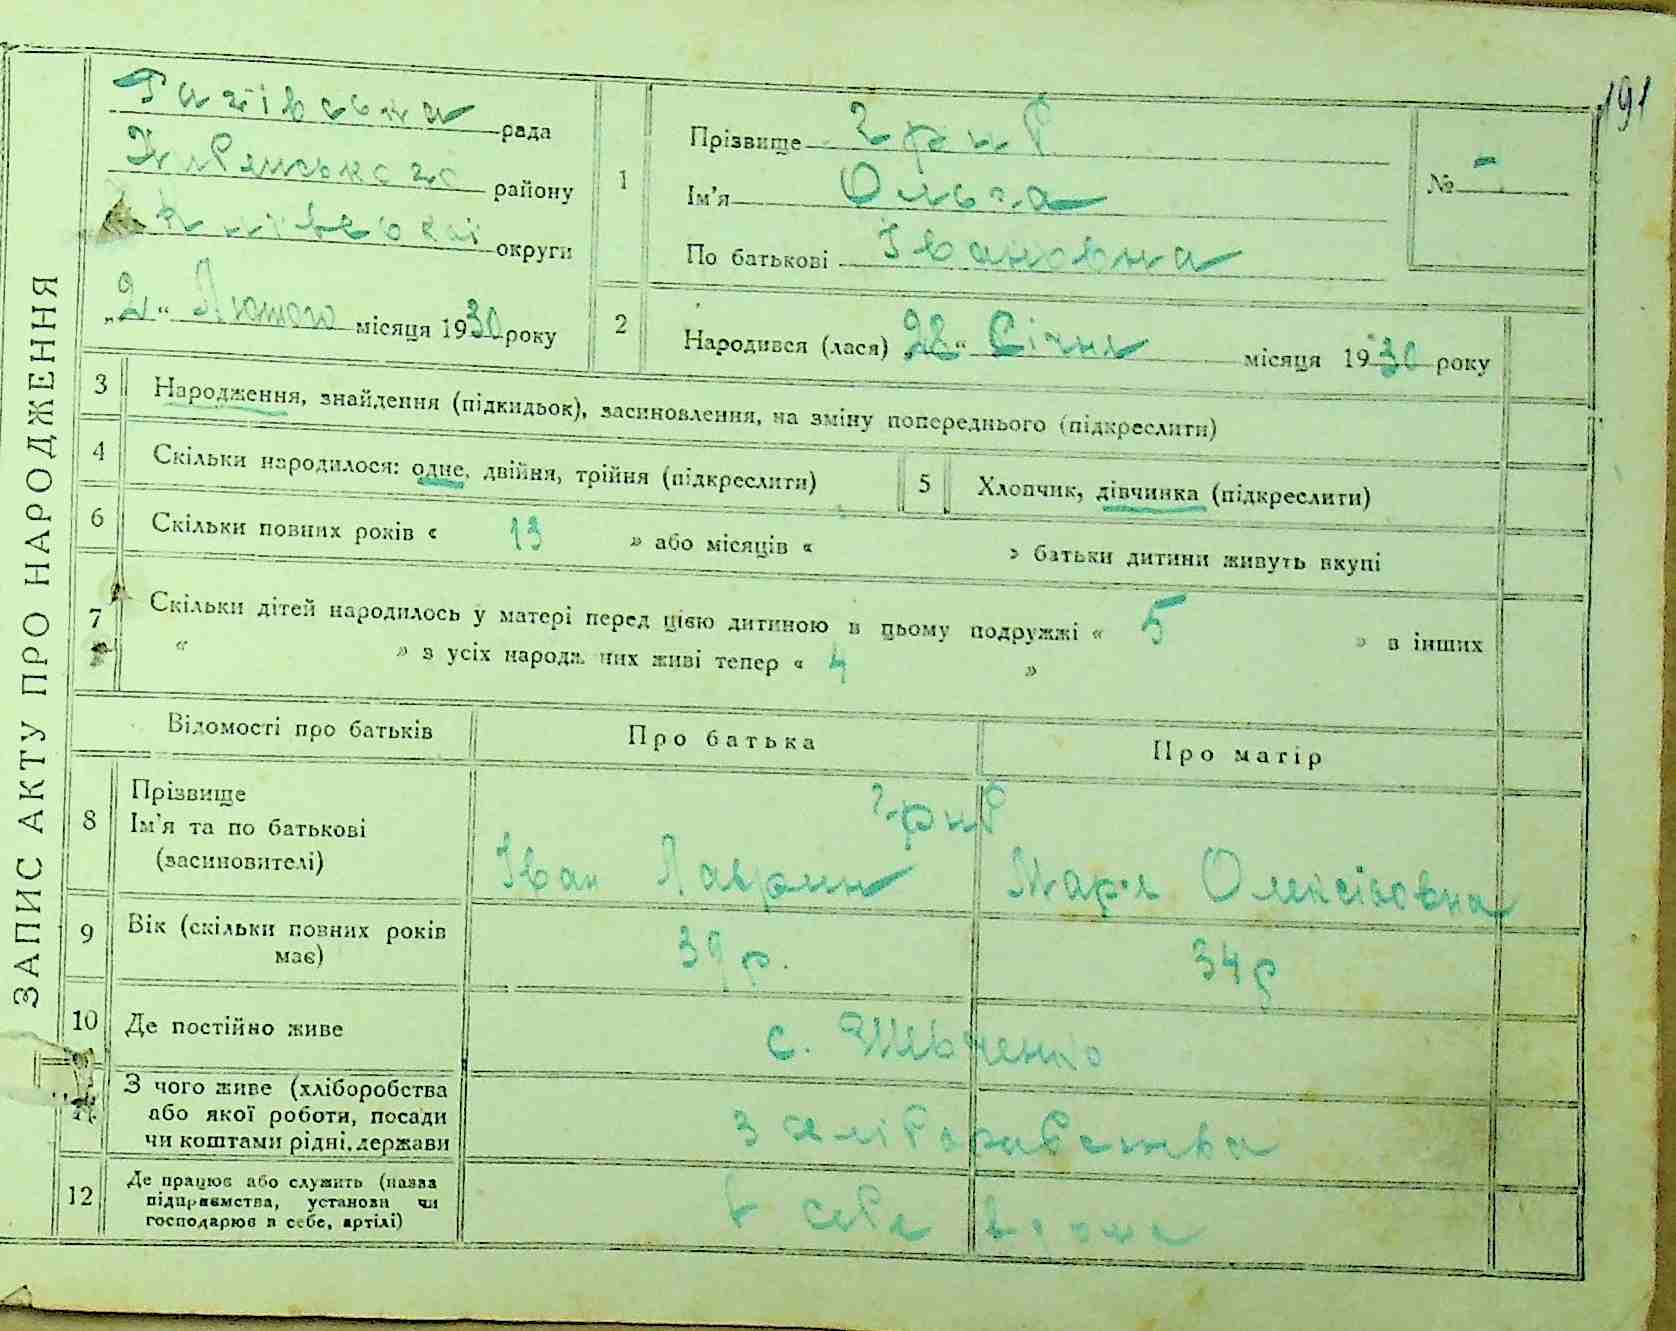 191
ЗАПИС АКТУ ПРО НАРОДЖЕННЯ
рада
району
округи
„2“ Лютого місяця 1930 року
1
Прізвище Гриб
Ім'я Ольга
По батькові Івановна
№ -
2
Народився (лася) „28“ Січня місяця 1930 року
3
Народження, знайдення (підкидьок), засиновлення, на зміну попереднього (підкреслити)
4
Скільки народилося: одне, двійня, трійня (підкреслити)
5
Хлопчик, дівчинка (підкреслити)
6
Скільки повних років « 13 » або місяців « » батьки дитини живуть вкупі
7
Скільки дітей народилось у матері перед цією дитиною в цьому подружжі « 5 » в інших
« » з усіх народж них живі тепер « 4 »
Відомості про батьків
Про батька
Про матір
8
Прізвище
Ім'я та по батькові
(засиновителі)
Гриб
Іван
Марія Олексіовна
9
Вік (скільки повних років
має)
39 р.
34 р
10
Де постійно живе
с. Шевченко
11
З чого живе (хліборобства
або якої роботи, посади
чи коштами рідні, держави
з хліборобства
12
Де працює або служить (назва
підприємства, установи чи
господарює в себе, артілі)
в себе вдома